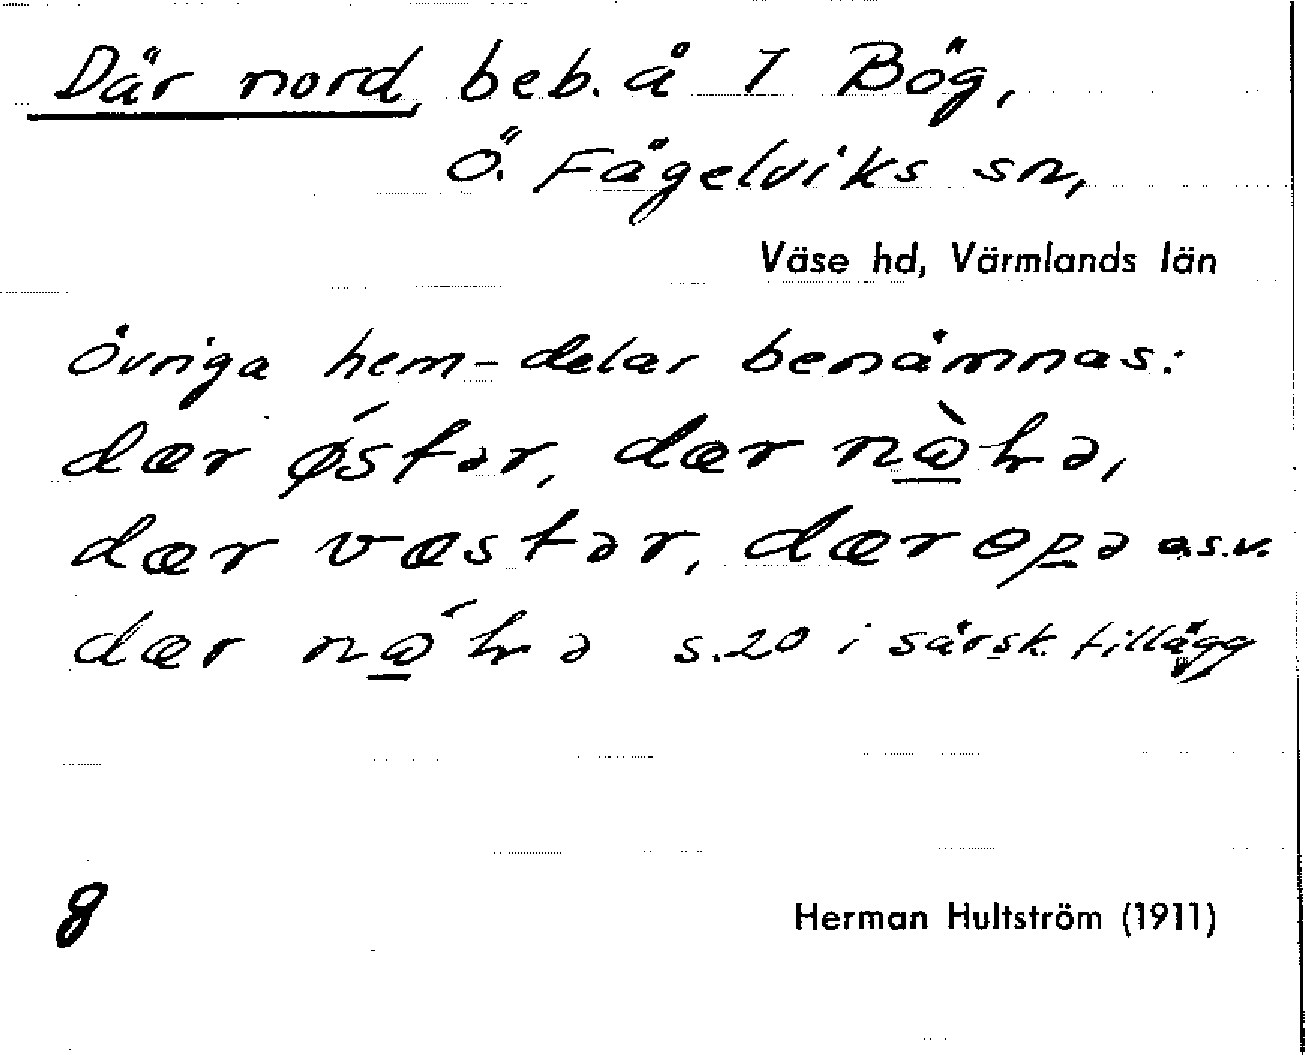 Där nord, beb. å 7 Bög,
Ö. Fågelviks sn,
Väse hd, Värmlands län
Övriga hem-delar benämnas:
dær ǿstər, dær
dær væstər, dær o.s.v.
dær s. 20 i särsk. tillägg
8
Herman Hultström (1911)